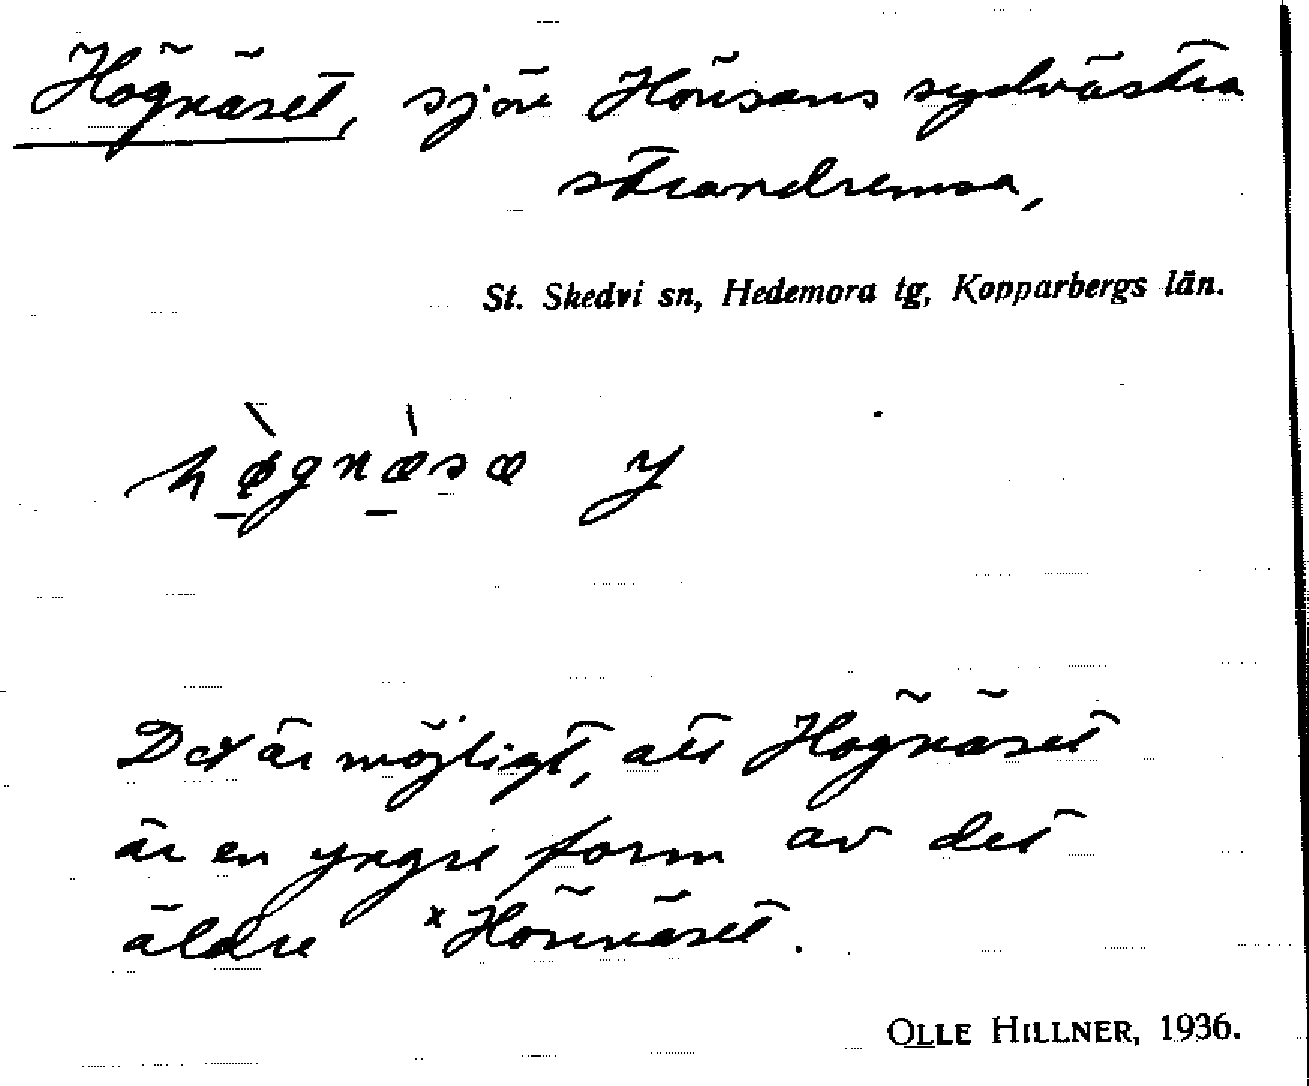 Högnäset, sjön Hönsans sydvästra
strandremsa,
St. Skedvi sn, Hedemora tg, Kopparbergs län.
hø̀gnæ̀sæ y
Det är möjligt, att Högnäset
är en yngre form av det
äldre *Hönsnäset.
OLLE HILLNER, 1936.